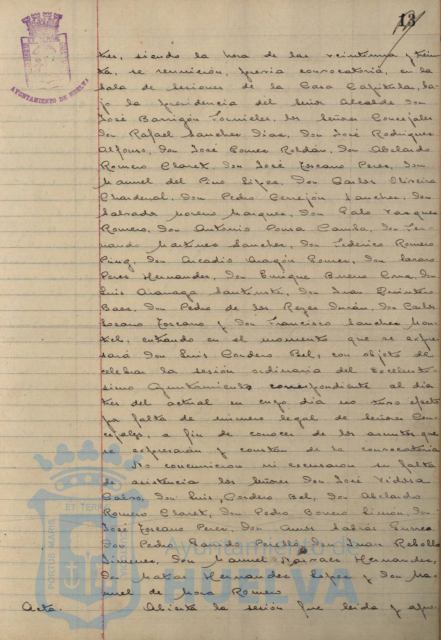 13
AYUNTAMIENTO DE HUELVA
tres, siendo la hora de las veintiuna y trein-
ta, se reunieron, previa convocatoria, en la
sala de sesiones de la Casa Capitular, ba-
jo la presidencia del señor Alcalde don
José Barrigón Fornieles, los señores Concejales
don Rafael Sanchez Diaz, don José Rodriguez
Alfonso, don José Ponce Roldán, don Abelardo
Romero Claret, don José Toscano Perez, don
Manuel del Pino Lopez, don Carlos Oliveira
Chardenal, don Pedro Cerrejón Sanchez, don
Salvador Moreno Marquez, don Pablo Vazquez
Romero, don Antonio Pousa Camba, don Fer-
nando Martinez Sanchez, don Federico Romero
Puig, don Arcadio Aragón Gomez, don
Perez Hernandez, don Enrique Bueno Cruz, don
Luis don Juan Quintero
Baez, don Pedro de los Reyes Durán, don Carlos
Lozano Toscano y don Francisco Sanchez Mon-
tiel, entrando en el momento que se expre-
sará don Luis Cordero Bel, con objeto de
celebrar la sesión ordinaria del Excelentí-
simo Ayuntamiento correspondiente al dia
tres del actual en cuyo dia no tuvo efecto
por falta de número legal de señores Con-
cejales, a fin de conocer de los asuntos que
se expresarán y constan de la convocatoria
No concurrieron ni excusaron su falta
de asistencia los señores don José Vidosa
Calvo, don Luis Cordero Bel, don Abelardo
Romero Claret, don Pedro Borrero Limón, don
José Toscano Perez, don Amós Sabrás Gurrea
don Pedro Garrido Perelló, don Juan Rebollo
Jimenez, don Manuel Narvaez Hernandez,
don Matias Hernandez Lopez y don Ma-
nuel de Mora Romero
Acta. Abierta la sesión fue leida y apro-
Ayuntamiento de
HUELVA
PORTUS MARIS ET TERRAE